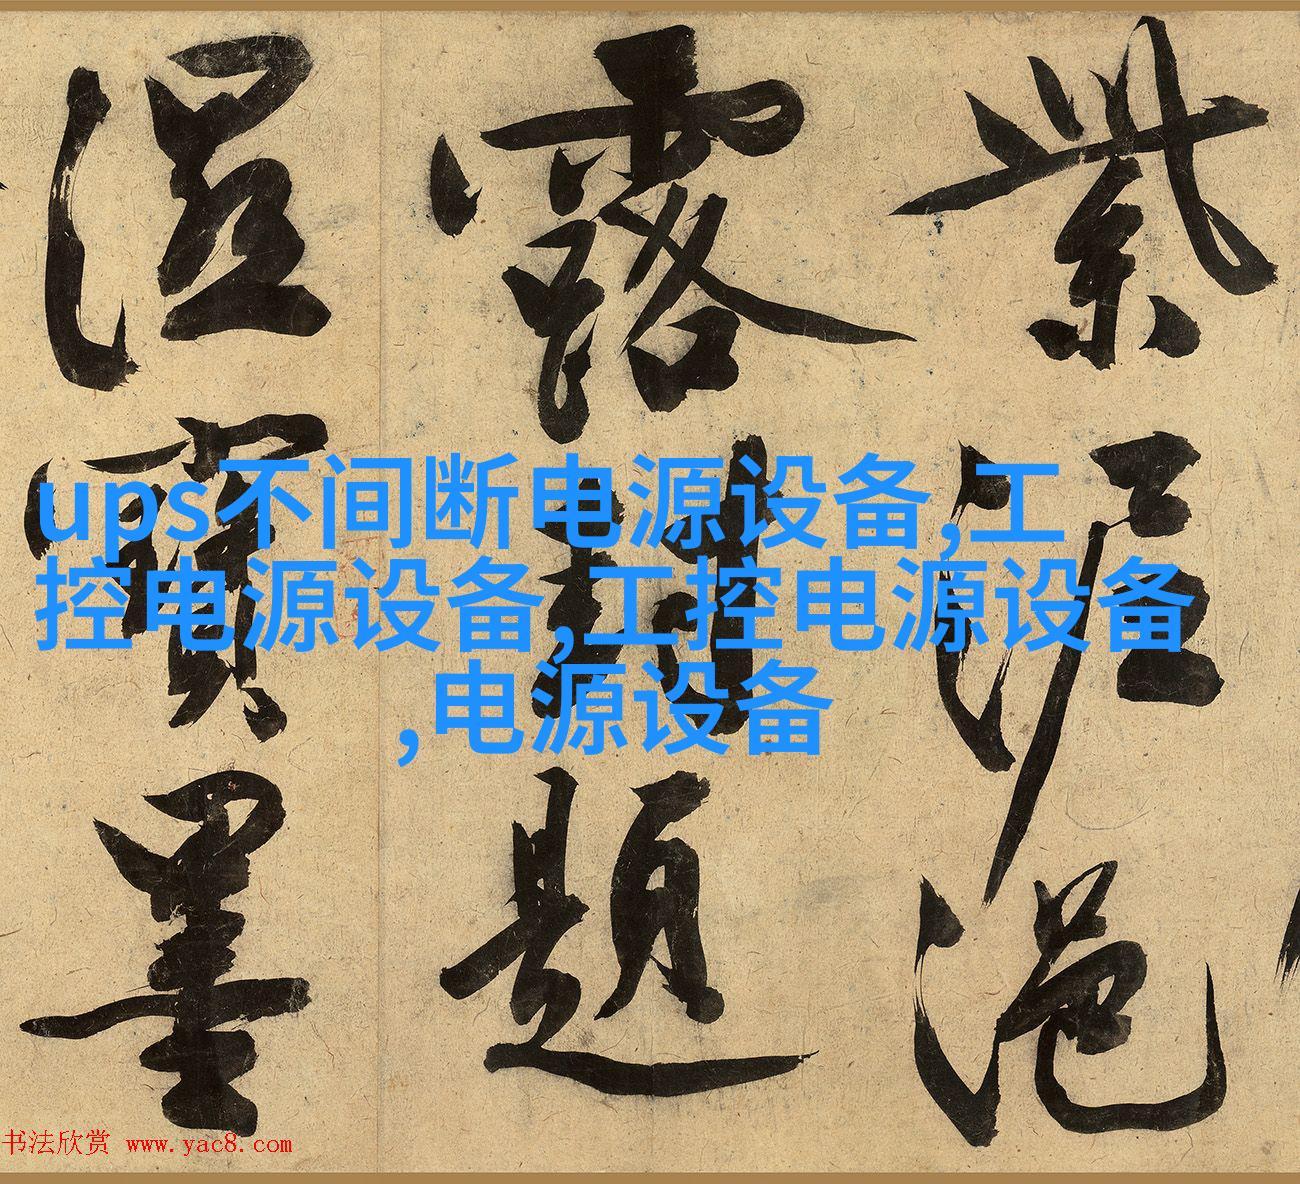 紫泥浥
露封題
湿寶墨
ups不间断电源设备,工
控电源设备,工控电源设备
,电源设备
书法欣赏 www.yac8.com